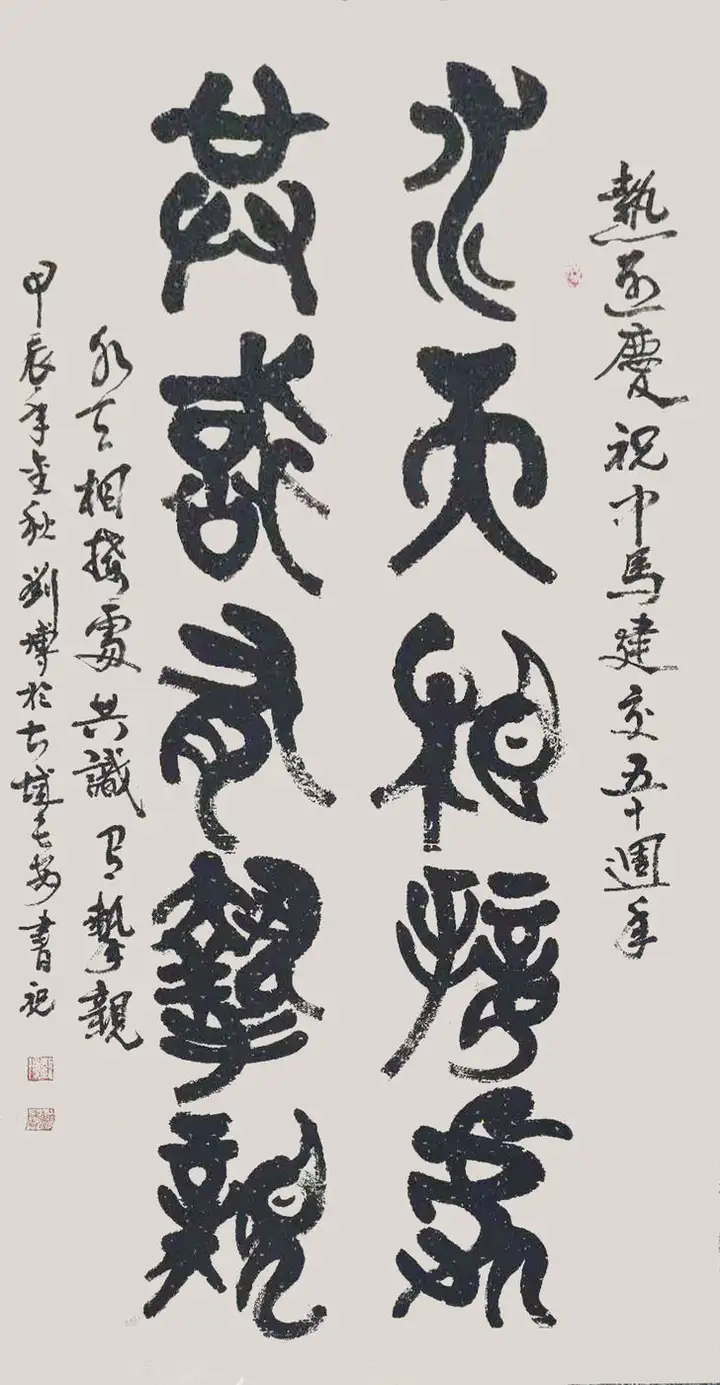 熱烈慶祝中馬建交五十週年
水天相接處
共識有摯親
水天相接處共識有摯親
甲辰年金秋劉博於古城長安書祝